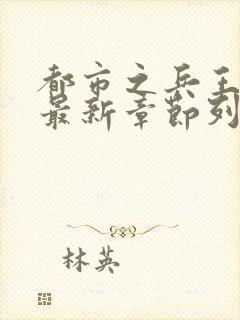 都市之兵王
最新章节列
林英